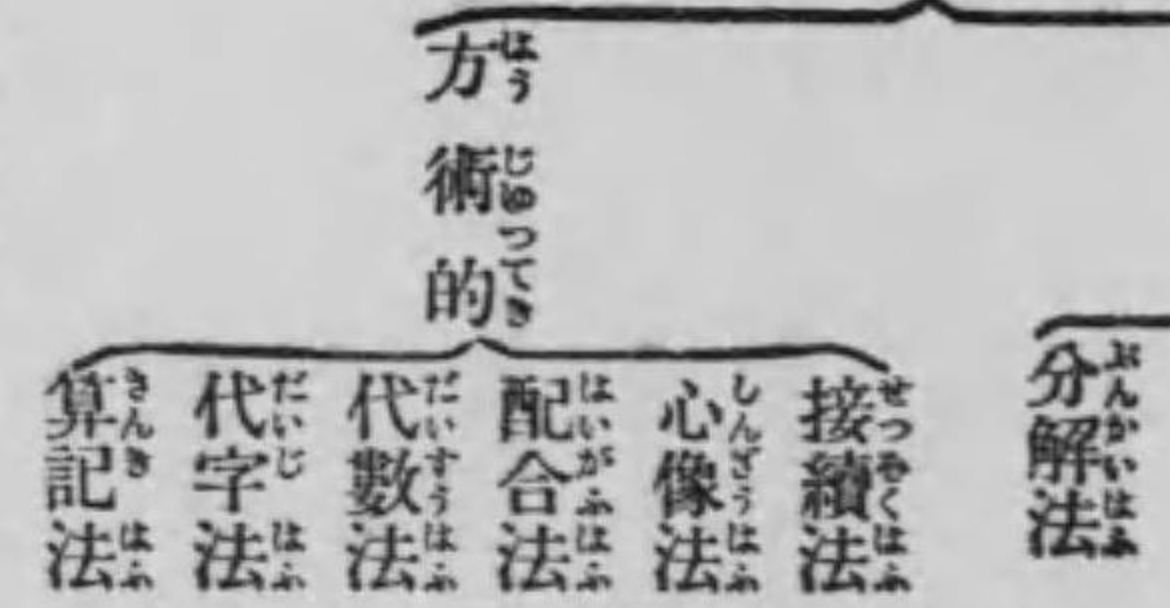 分解法
ぶんかいはふ
方術的
はうじゅつてき
接續法
せつぞくはふ
心像法
しんざうはふ
配合法
はいがふはふ
代數法
だいすうはふ
代字法
だいじはふ
算記法
さんきはふ